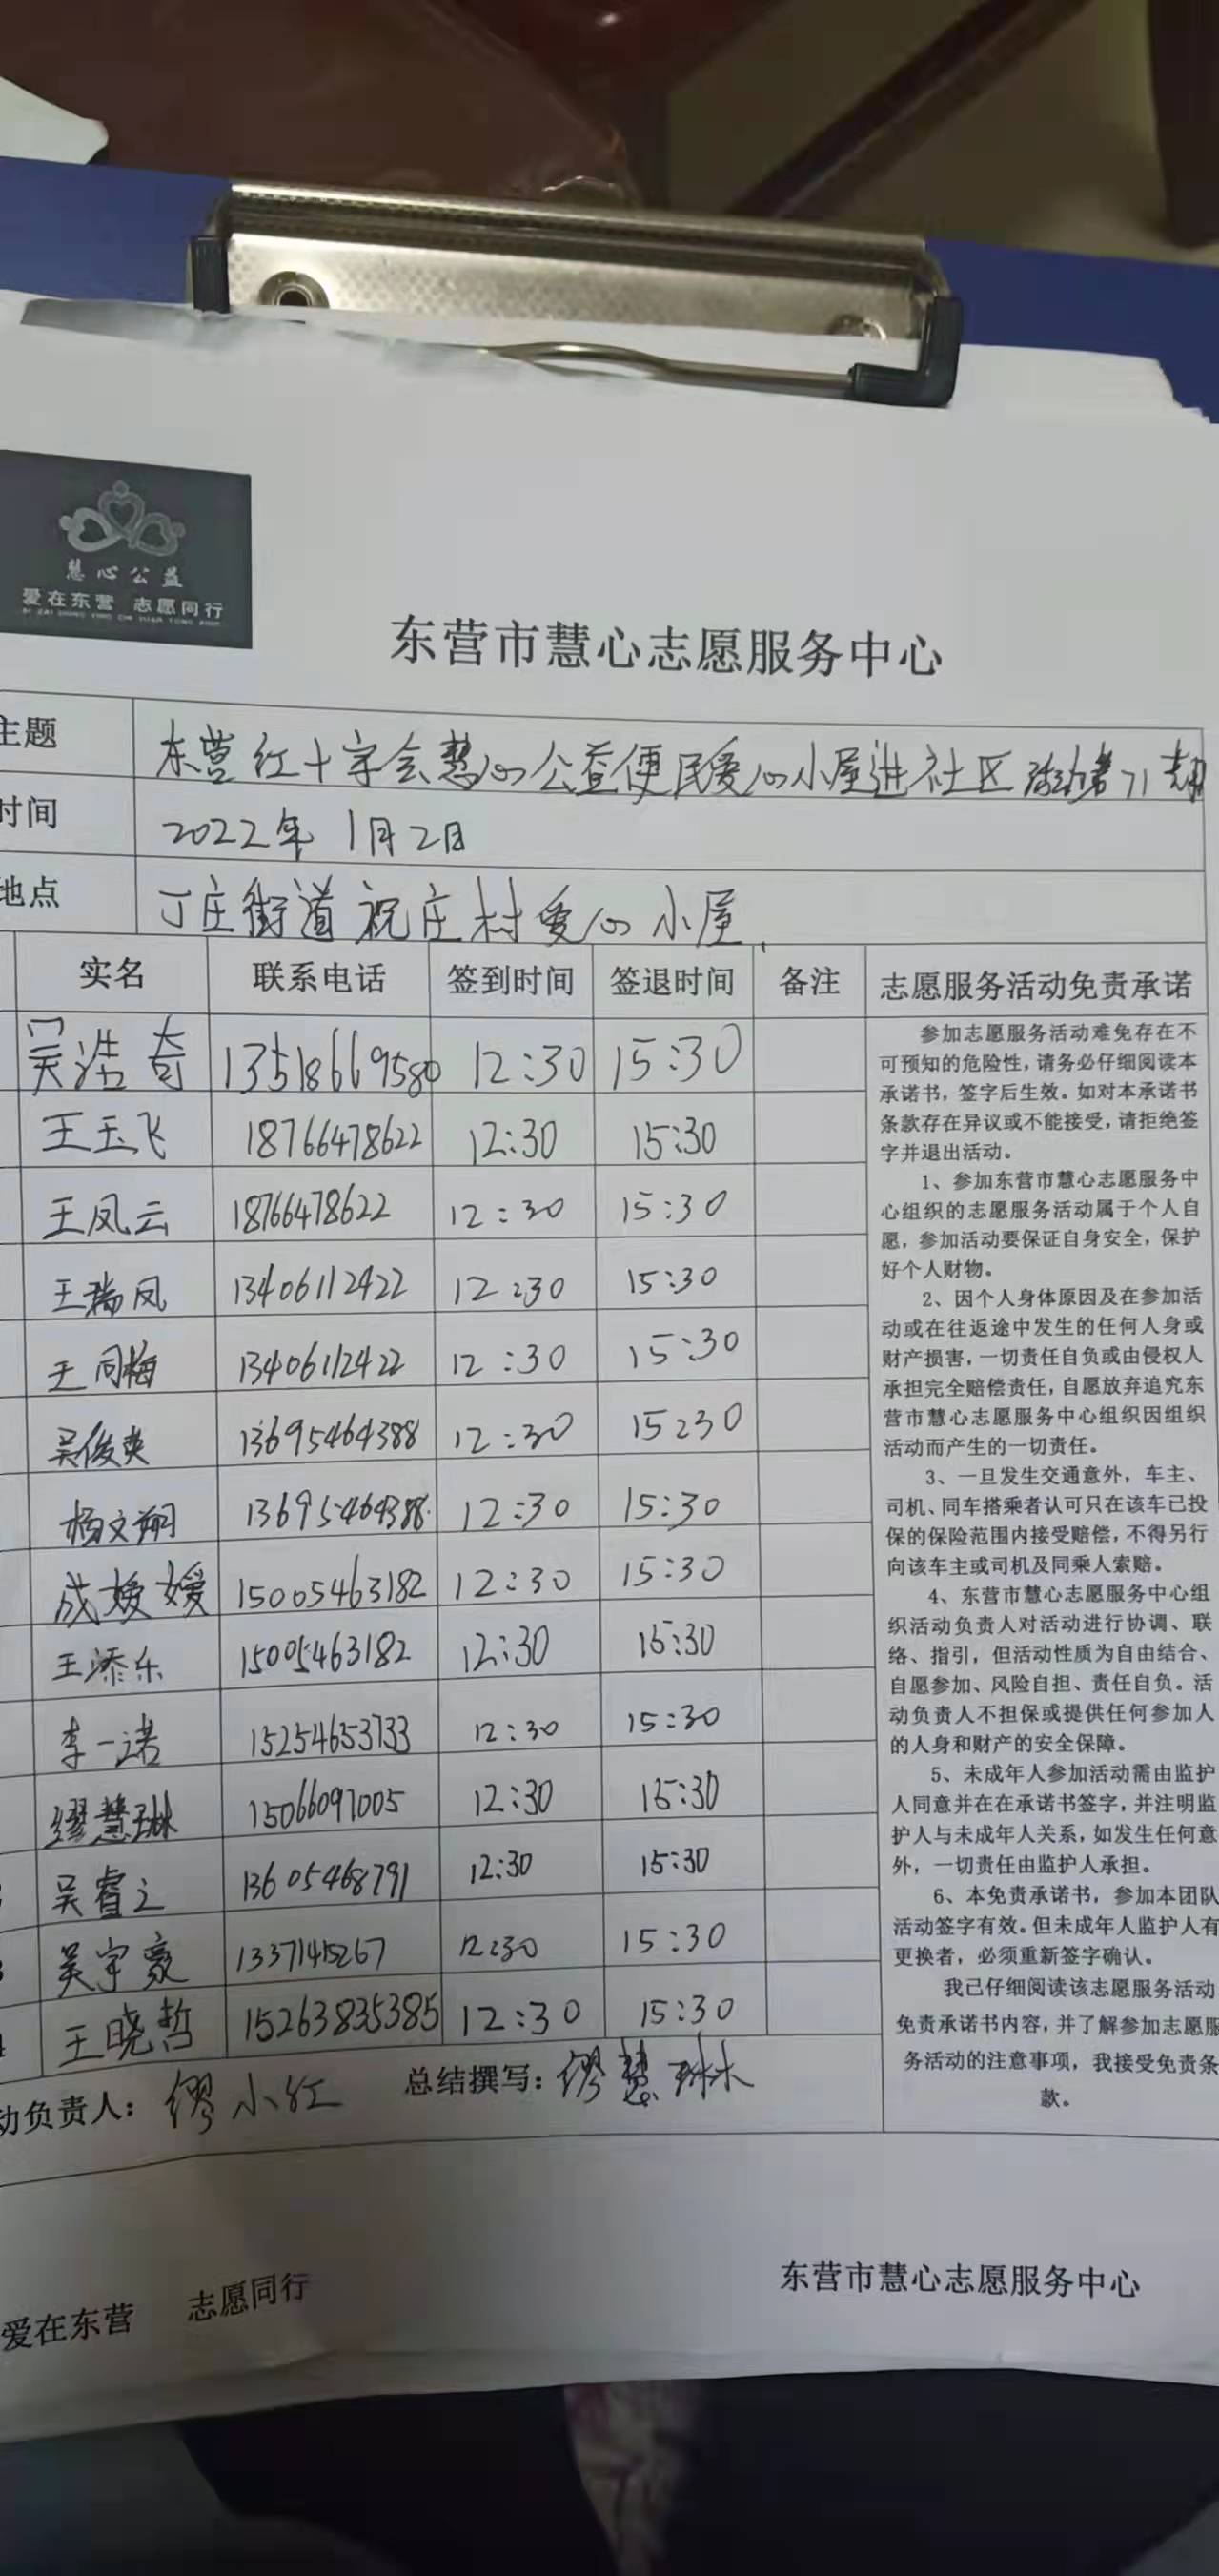 慧心公益
爱在东营 志愿同行
东营市慧心志愿服务中心
主题 东营红十字会慧心公益便民爱心小屋进社区活动第71期
时间 2022年1月2日
地点 丁庄街道祝庄村爱心小屋
实名 联系电话 签到时间 签退时间 备注 志愿服务活动免责承诺
吴浩奇 13518669580 12:30 15:30
王玉飞 18766478622 12:30 15:30
王凤云 18766478622 12:30 15:30
王瑞凤 13406112422 12:30 15:30
王同梅 13406112422 12:30 15:30
吴俊英 13695464388 12:30 15:30
杨文翔 13695464388 12:30 15:30
成媛媛 15005463182 12:30 15:30
王添乐 15005463182 12:30 15:30
李一诺 15254653733 12:30 15:30
缪慧琳 15066097005 12:30 15:30
吴睿之 13605468791 12:30 15:30
3 吴宇豪 13371415267 12:30 15:30
4 王晓哲 15263835385 12:30 15:30
参加志愿服务活动难免存在不
可预知的危险性，请务必仔细阅读本
承诺书，签字后生效。如对本承诺书
条款存在异议或不能接受，请拒绝签
字并退出活动。
1、参加东营市慧心志愿服务中
心组织的志愿服务活动属于个人自
愿，参加活动要保证自身安全，保护
好个人财物。
2、因个人身体原因及在参加活
动或在往返途中发生的任何人身或
财产损害，一切责任自负或由侵权人
承担完全赔偿责任，自愿放弃追究东
营市慧心志愿服务中心组织因组织
活动而产生的一切责任。
3、一旦发生交通意外，车主、
司机、同车搭乘者认可只在该车已投
保的保险范围内接受赔偿，不得另行
向该车主或司机及同乘人索赔。
4、东营市慧心志愿服务中心组
织活动负责人对活动进行协调、联
络、指引，但活动性质为自由结合、
自愿参加、风险自担、责任自负。活
动负责人不担保或提供任何参加人
的人身和财产的安全保障。
5、未成年人参加活动需由监护
人同意并在在承诺书签字，并注明监
护人与未成年人关系，如发生任何意
外，一切责任由监护人承担。
6、本免责承诺书，参加本团队
活动签字有效。但未成年人监护人有
更换者，必须重新签字确认。
我已仔细阅读该志愿服务活动
免责承诺书内容，并了解参加志愿服
务活动的注意事项，我接受免责条
款。
动负责人：缪小红 总结撰写：缪慧琳
爱在东营 志愿同行 东营市慧心志愿服务中心